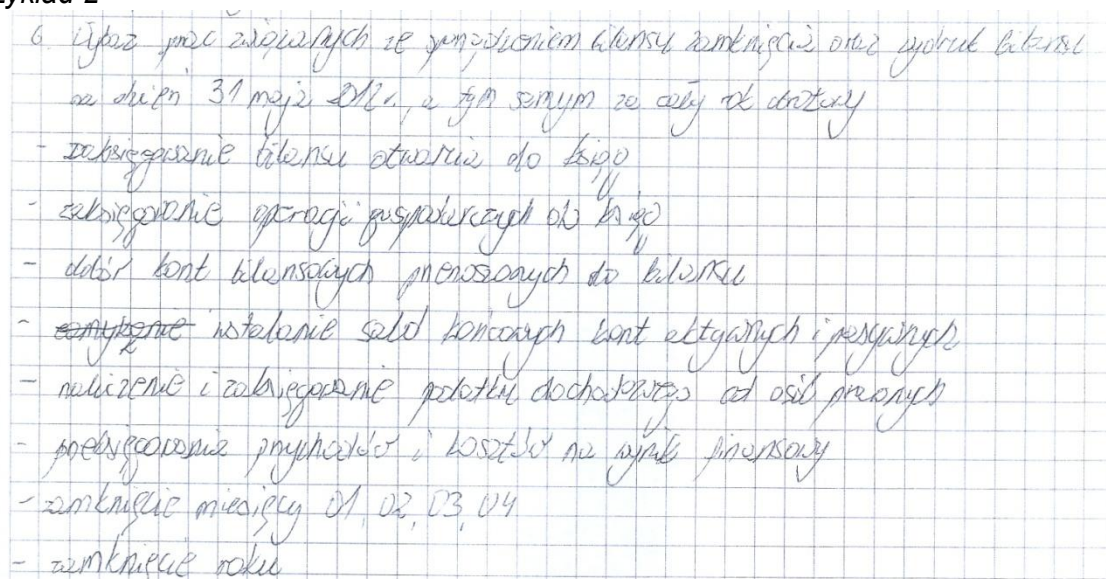 6. Wykaz prac związanych ze sporządzeniem bilansu zamknięcia oraz wydruk bilansu
na dzień 31 maja 2012r., a tym samym za cały rok obrotowy
- zaksięgowanie bilansu otwarcia do ksiąg
- zaksięgowanie operacji gospodarczych do ksiąg
- dobór kont bilansowych przenoszonych do bilansu
- zamykanie ustalanie sald końcowych kont aktywnych i pasywnych
- naliczenie i zaksięgowanie podatku dochodowego od osób prawnych
- przeksięgowania przychodów i kosztów na wynik finansowy
- zamknięcie miesięcy 01, 02, 03, 04
- zamknięcie roku